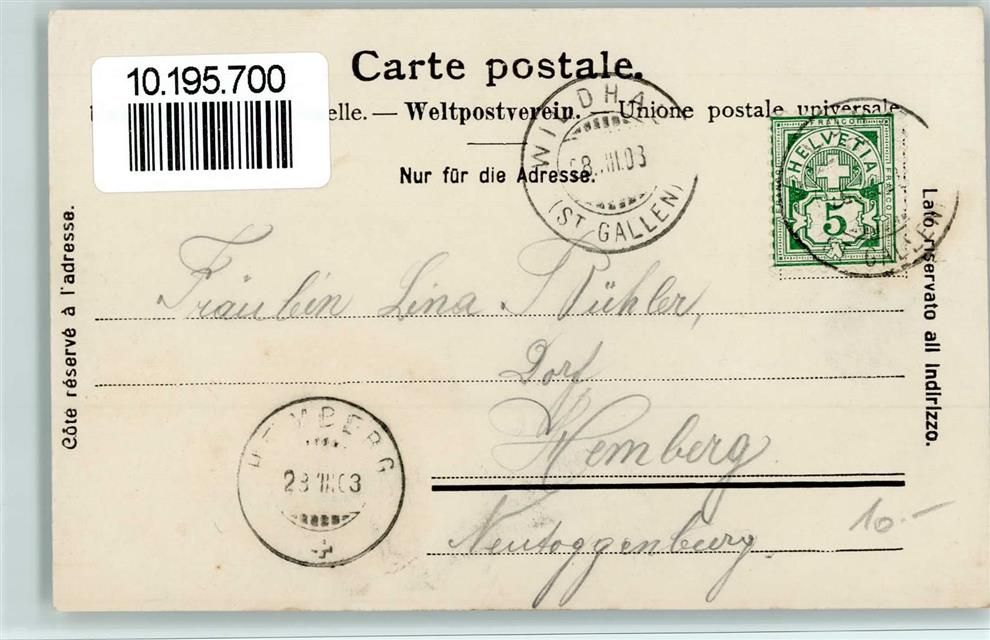 10.195.700
Carte postale.
elle. — Weltpostverein. — Unione postale universale
Nur für die Adresse.
WILDHA
28.
(ST GALLEN)
FRANCO
FRANCO
HELVETIA
5
GALLEN)
Côté réservé à l'adresse.
Lato riservato all Indirizzo.
Fräulein Lina Bühler,
Dorf
Hemberg
Neutoggenburg.
10.-
HEMBERG